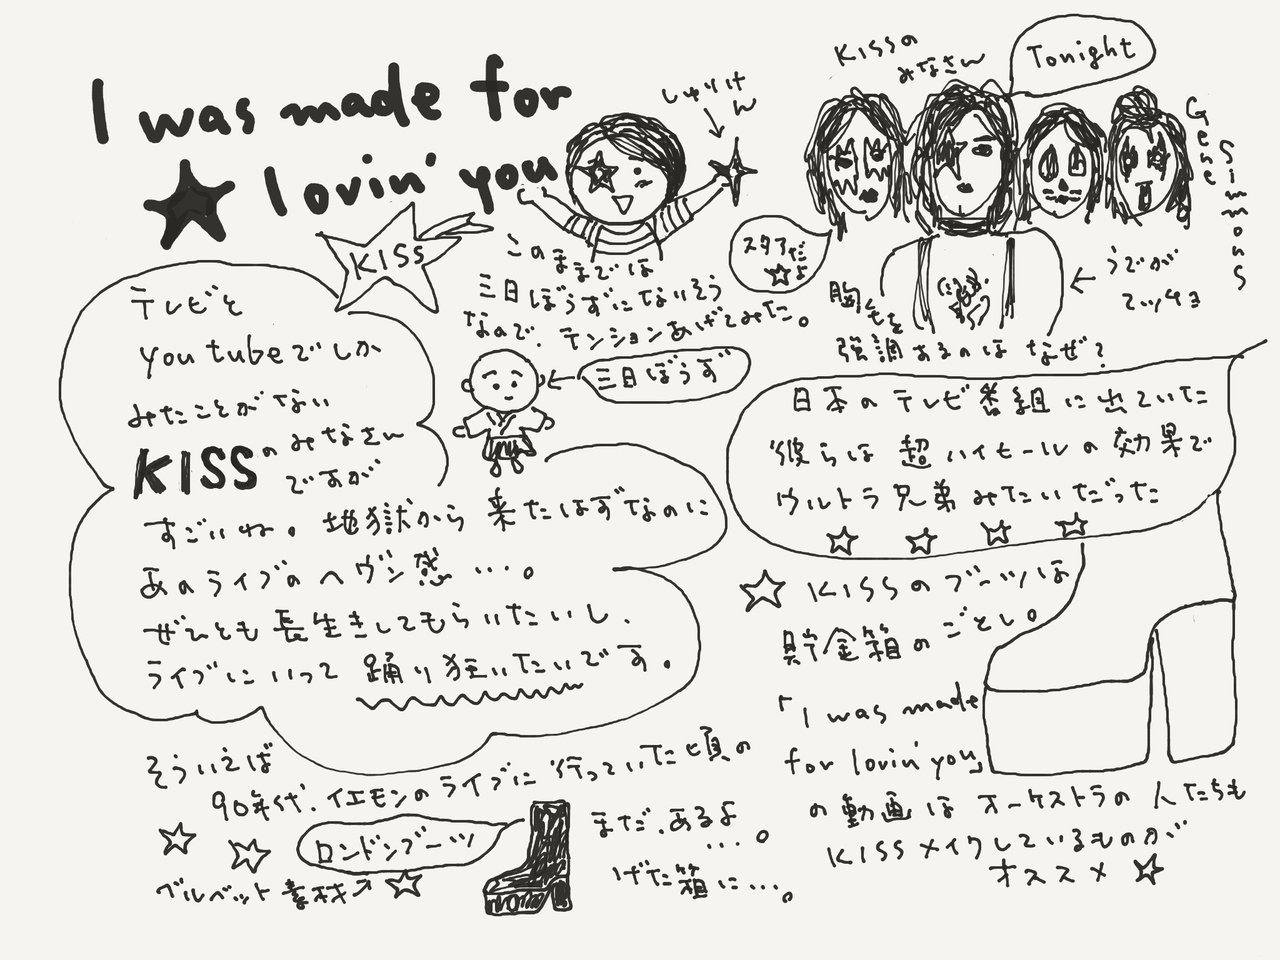 I was made for
lovin' you
KISS
しゅりけん
このままでは
三日ぼうずになりそう
なので、テンションあげてみた。
三日ぼうず
テレビと
you tubeでしか
みたことがない
KISSのみなさん
ですが
すごいね。地獄から来たはずなのに
あのライブのヘヴン感…。
ぜひとも長生きしてもらいたいし、
ライブにいって踊り狂いたいです。
そういえば
90年代、イエモンのライブに行っていた頃の
ロンドンブーツ
ベルベット素材
まだ、あるよ…。
げた箱に…。
KISSの
みなさん
Tonight
Gene
Simmons
スタアだ
よ
うでが
ムッチョ
胸毛を
強調あるのはなぜ?
日本のテレビ番組に出ていた
彼らは超ハイヒールの効果で
ウルトラ兄弟みたいだった
KISSのブーツは
貯金箱のごとし。
「I was made
for lovin' you」
の動画はオーケストラの人たちも
KISSメイクしているものが
オススメ